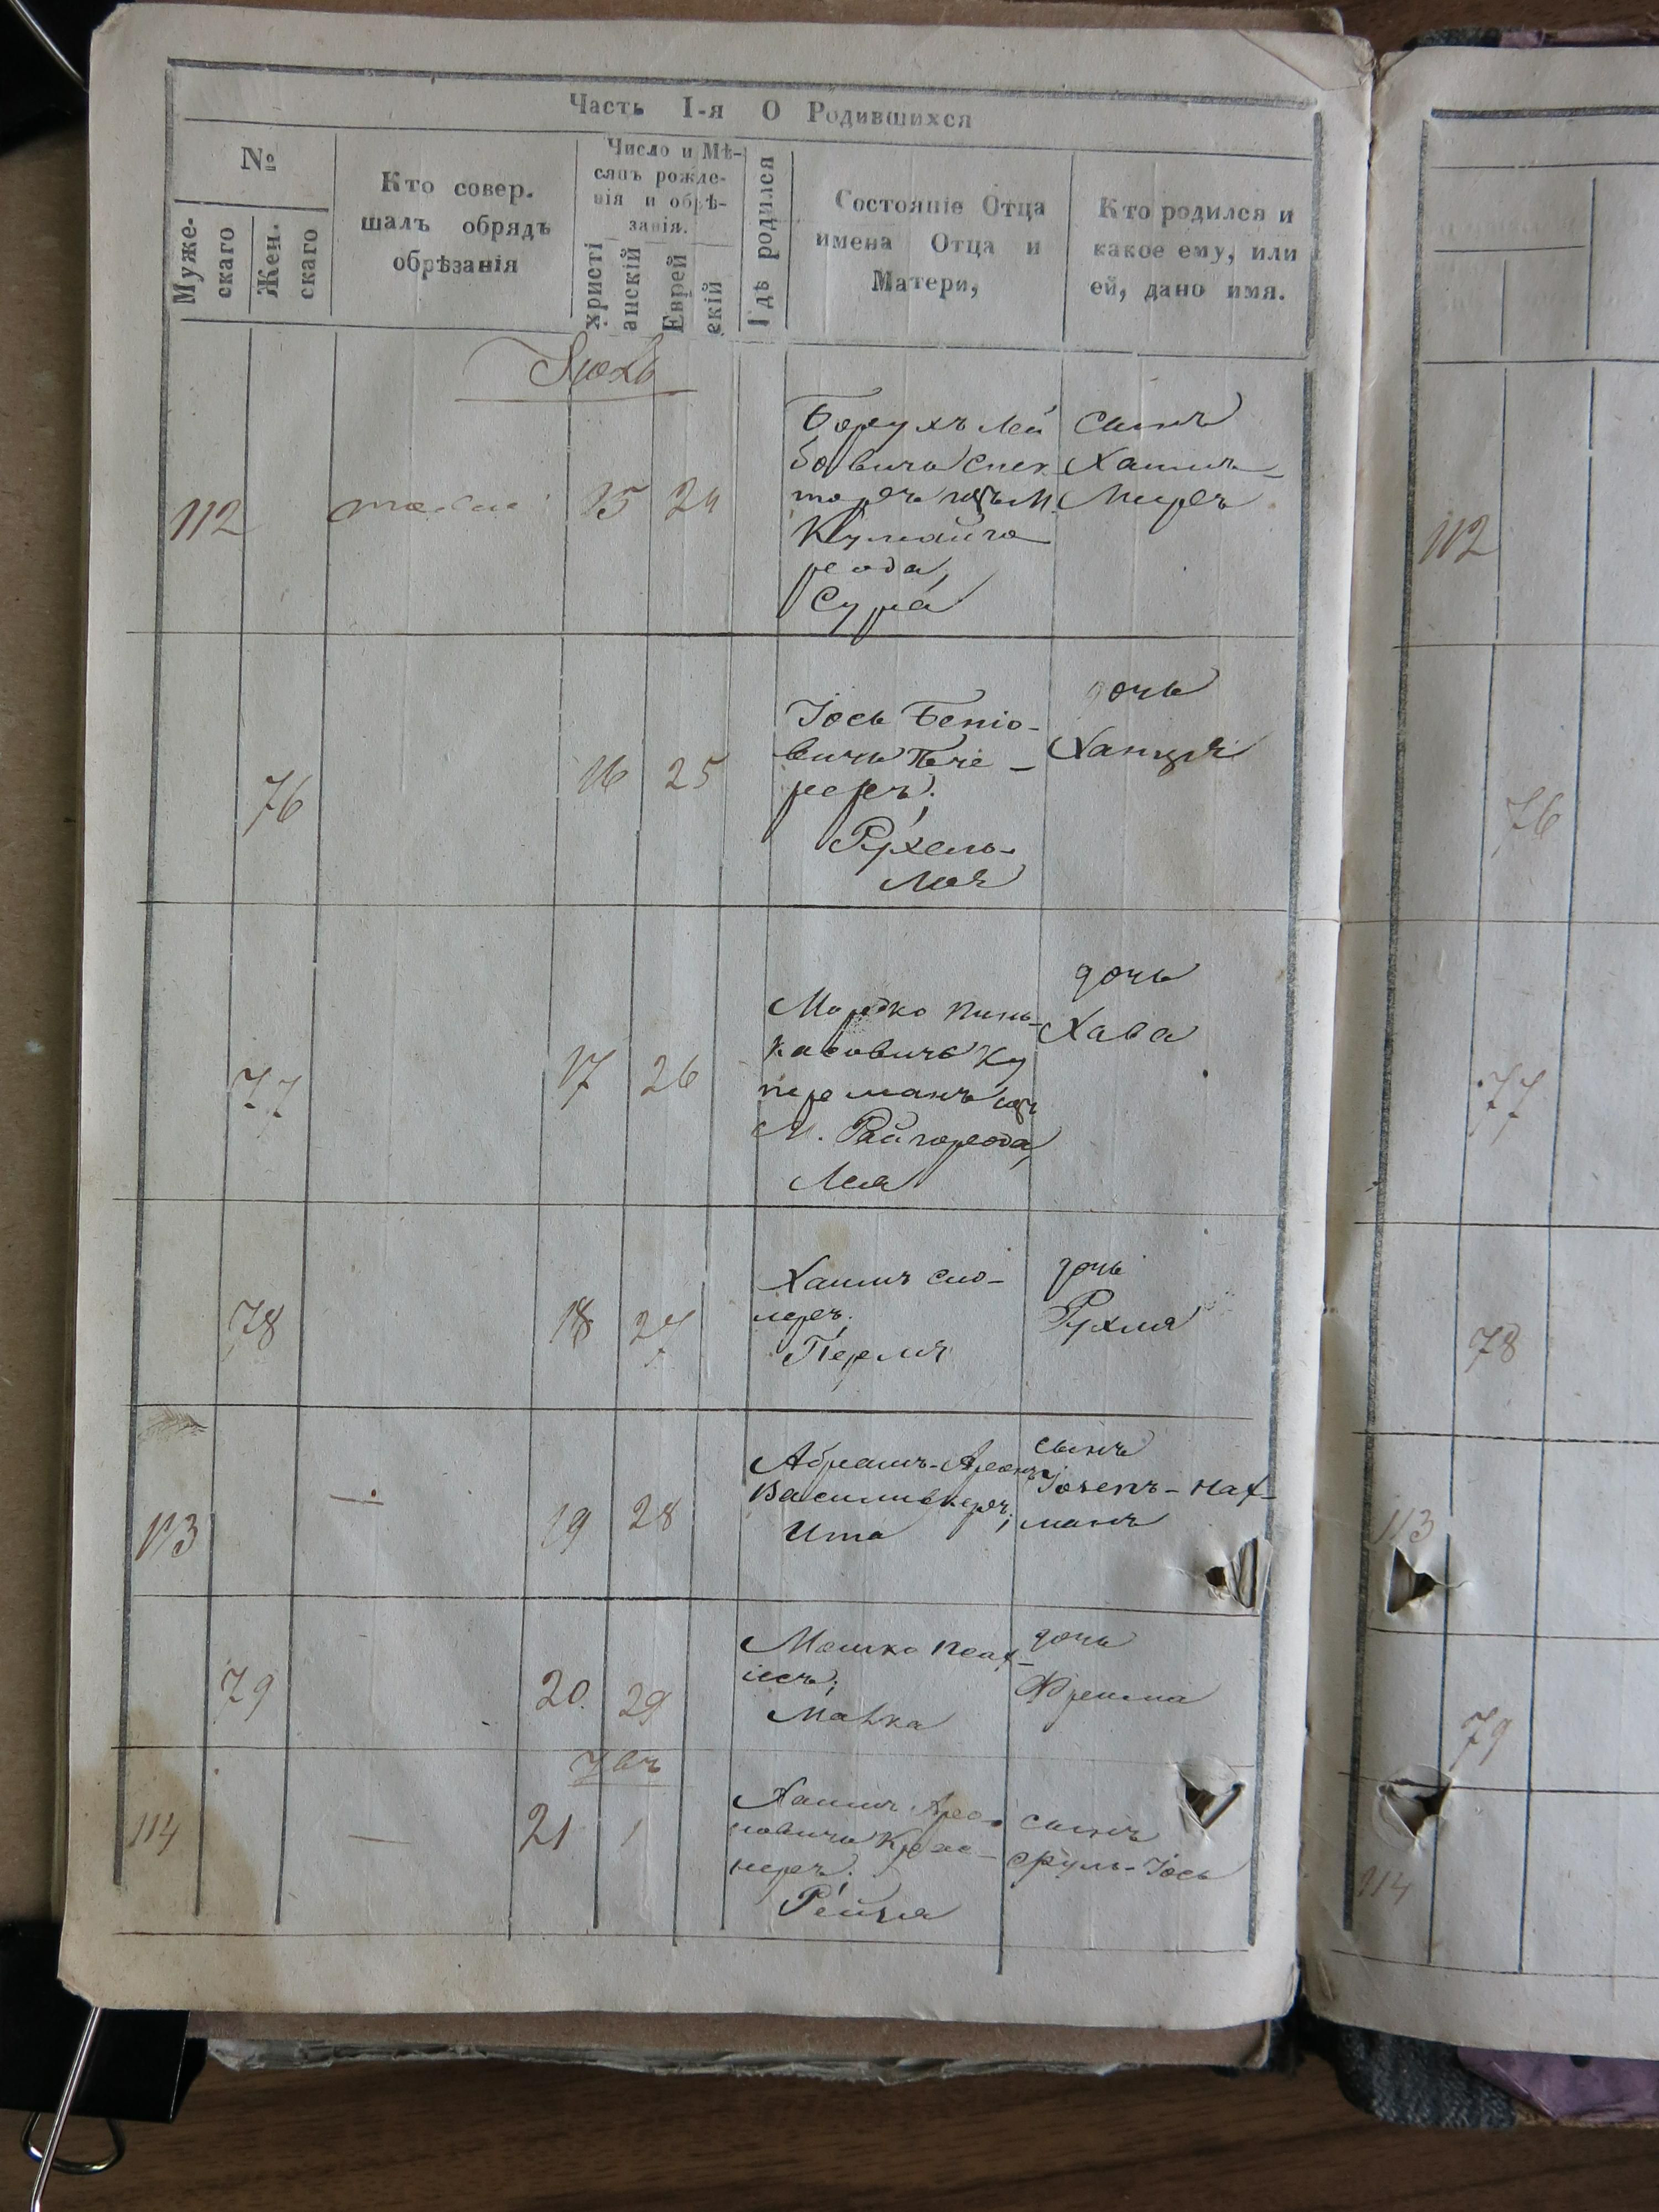 Часть I-я О Родившихся
№
Муже-
скаго
Жен.
скаго
Кто совер-
шалъ обрядъ
обрѣзанія
Число и Мѣ-
сяцъ рожде-
нія и обрѣ-
занія.
христі
анскій
Еврей
скій
Гдѣ родился
Состояніе Отца
имена Отца и
Матери,
Кто родился и
какое ему, или
ей, дано имя.
112
15
24
Борухъ Лей
бовичъ Спек
торъ М.
города,
Сура
сынъ
Хаимъ
Меръ
112
76
16
25
Іось Беніо-
вичъ
Рухель-
Лея
дочь
Ханця
76
77
17
26
Мордко Пинь-
касовичъ Ку
перманъ
М. Райгорода,
Лея
дочь
Хава
77
78
18
27
Хаимъ Сто-
леръ;
Перля
дочь
Рухля
78
113
—
19
28
Абрамъ-Аронъ
Василиверъ;
Ита
сынъ
Іосепъ-Нах-
манъ
113
79
—
20
29
Мошко
Малка
дочь
Фрейма
79
114
—
21
1
Хаимъ Аро-
новичъ
Рейзя
сынъ
Сруль-Іось
114